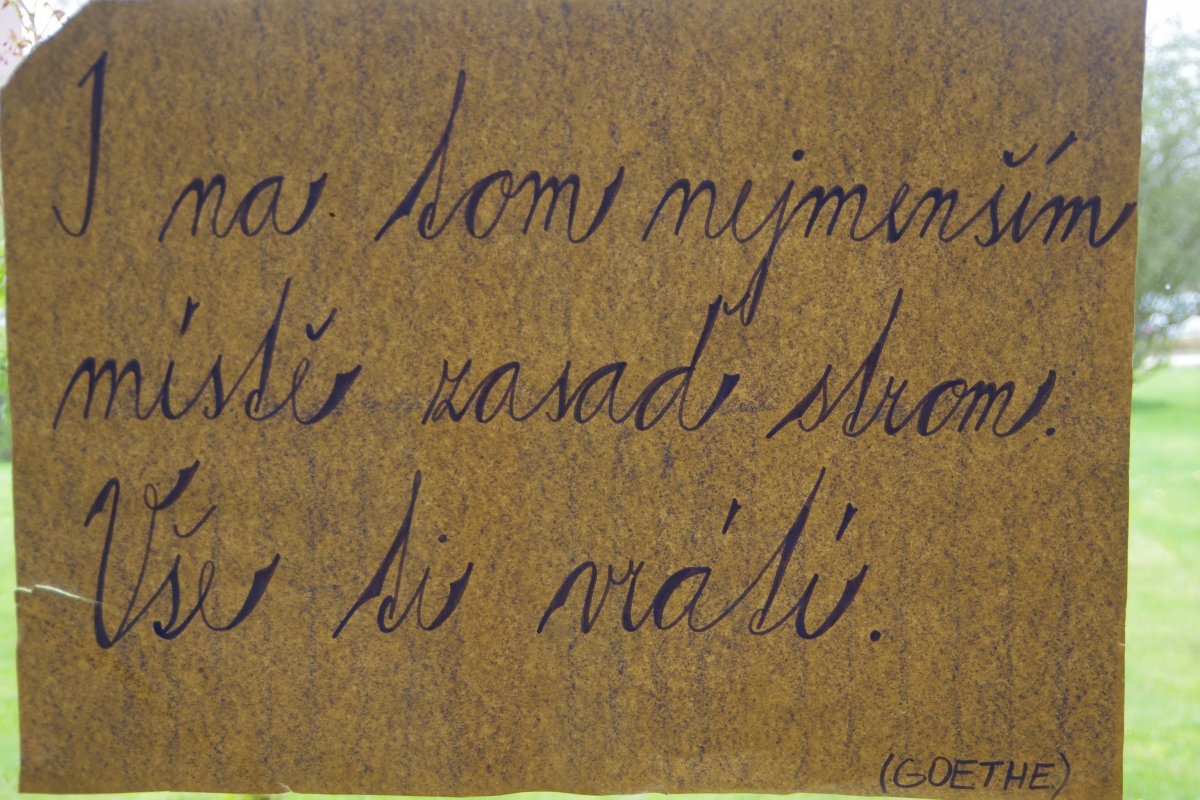 I na tom nejmenším
místě zasaď strom.
Vše ti vrátí.
(GOETHE)